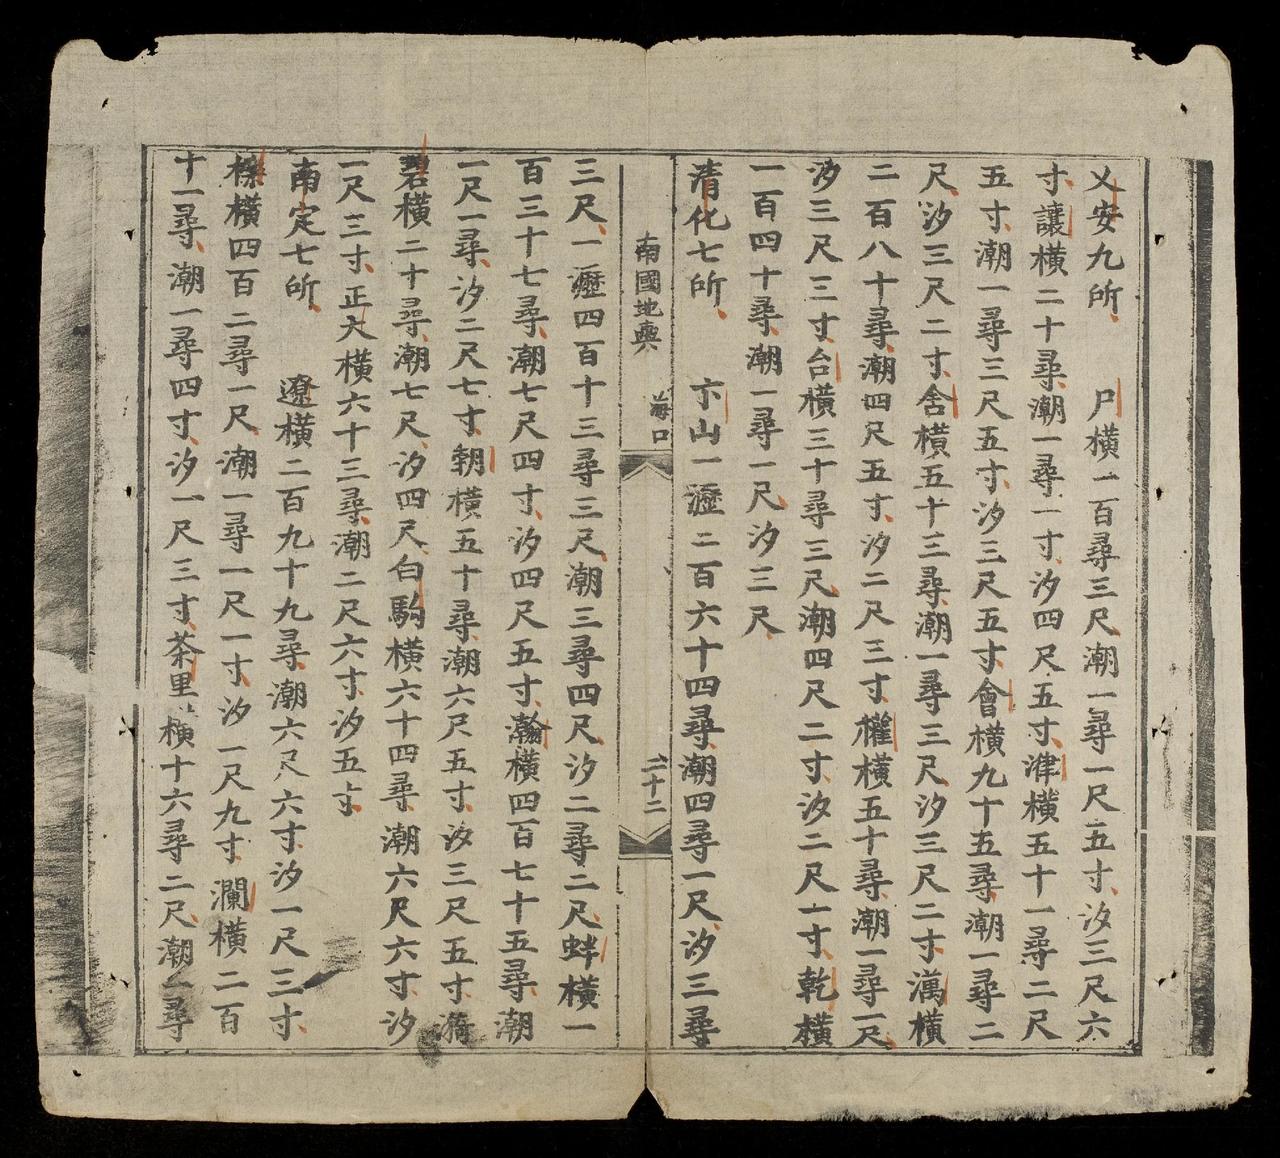 乂安九所 尸橫一百尋三尺潮一尋一尺五寸汐三尺六
寸讓橫二十尋潮一尋一寸汐四尺五寸津橫五十一尋二尺
五寸潮一尋三尺五寸汐三尺五寸會橫九十五尋潮一尋二
尺汐三尺二寸舍橫五十三尋潮一尋三尺汐三尺二寸澫橫
二百八十尋潮四尺五寸汐二尺三寸權橫五十尋潮一尋一尺
汐三尺三寸台橫三十尋三尺潮四尺二寸汐二尺一寸乾橫
一百四十尋潮一尋一尺汐三尺
清化七所 卞山一瀝二百六十四尋潮四尋一尺汐三尋
南國地輿 海口 二十二
三尺一瀝四百十三尋三尺潮三尋四尺汐二尋二尺蚌橫一
百三十七尋潮七尺四寸汐四尺五寸瀚橫四百七十五尋潮
一尺一尋汐二尺七寸朝橫五十尋潮六尺五寸汐三尺五寸漪
碧橫二十尋潮七尺汐四尺白駒橫六十四尋潮六尺六寸汐
一尺三寸正大橫六十三尋潮二尺六寸汐五寸
南定七所 遼橫二百九十九尋潮六尺六寸汐一尺三寸
橫四百二尋一尺潮一尋一尺一寸汐一尺九寸瀾橫二百
十一尋潮一尋四寸汐一尺三寸茶里橫十六尋二尺潮一尋